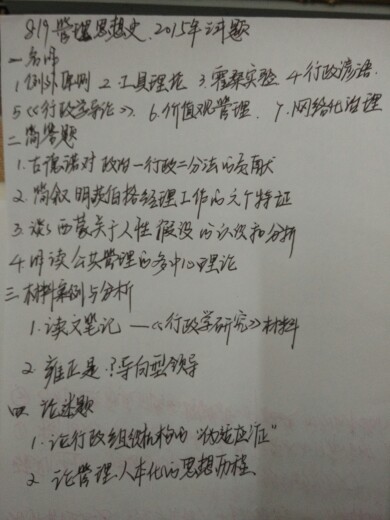 819管理思想史.2015年试题
一名词
1例外原则 2.工具理论 3.霍桑实验 4.行政谚语
5《《行政学导论》》. 6.价值观管理. 7.网络化治理
二简答题
1.古德诺对政治一行政二分法的贡献
2.简叙明茨伯格经理工作的六个特征
3.谈西蒙关于人性假设的认识和分析
4.解读公共管理的多中心理论
三材料案例与分析
1.读文笔记—《《行政学研究》》材料
2.雍正是?导向型领导
四 论述题
1.论行政组织机构的"
2.论管理人本化的思想历程